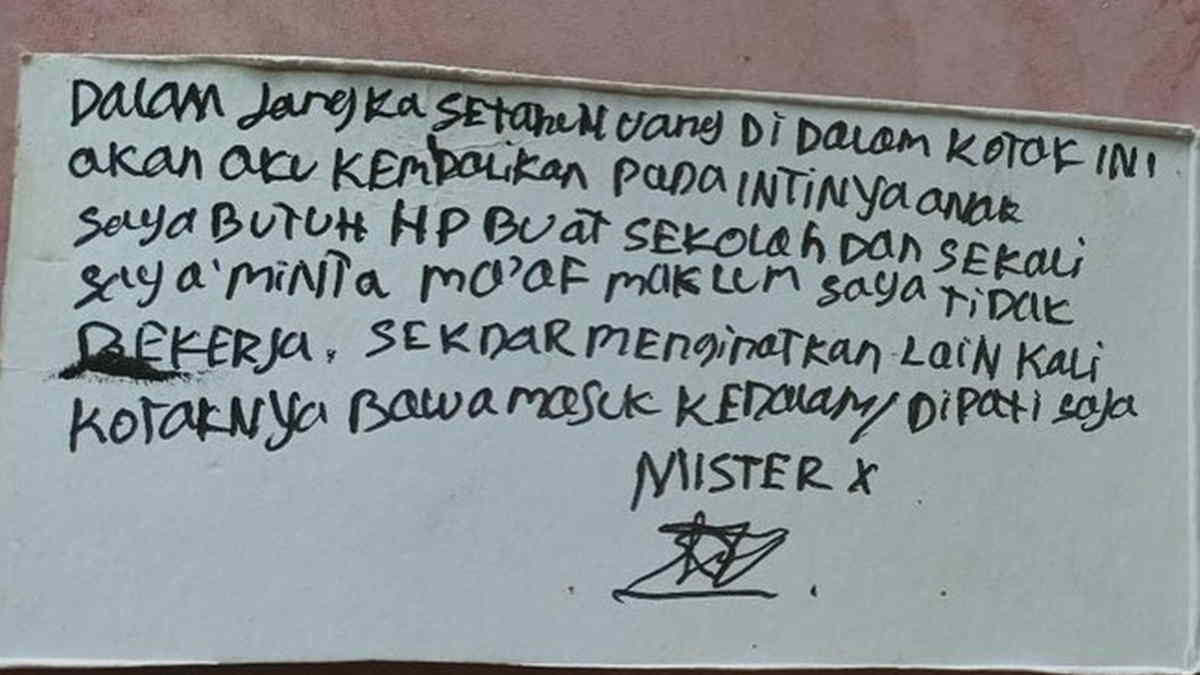 DALAM JangKa SETAHUN UANG Di DALAM KOTAK INI
AKAN AKU KEMBALIKAN PADA INTINYA ANAK
SAYA BUTUH HP BUAT SEKOLAH DAN SEKALI
SAYA MINTA MA'AF MAKLUM SAYA TIDAK
BEKERJA. SEKDAR MENGINATKAN LAIN KALI
KOTAKNYA BAWA MASUK KEDALAM/DIPATI SAJA
MISTER X